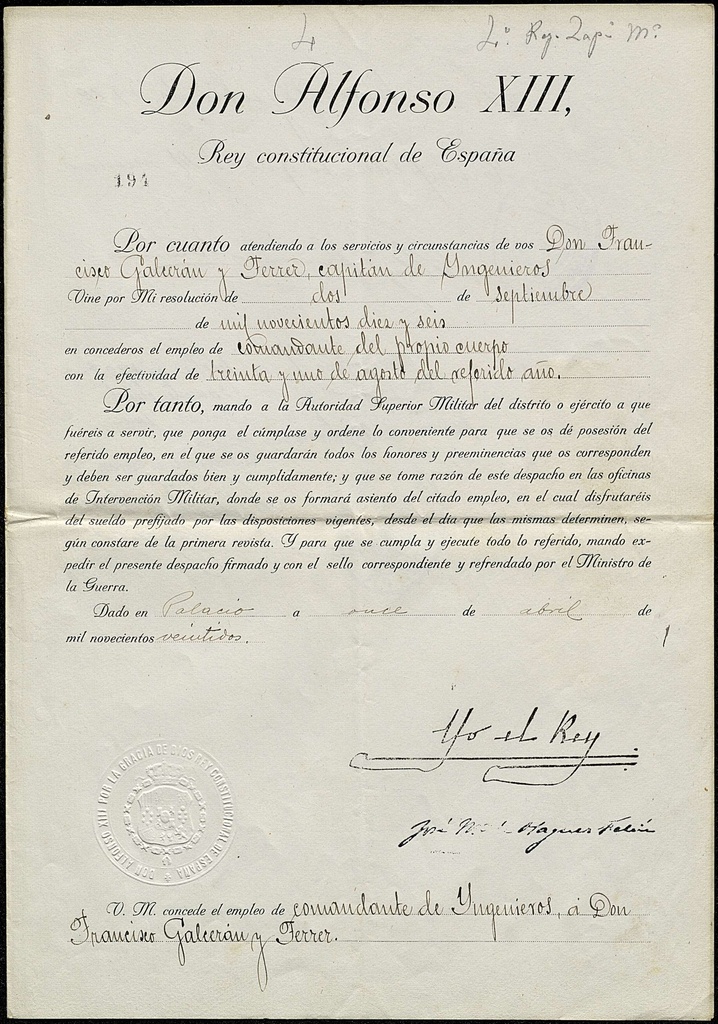 4
4º Reg. Zapª Mª
Don Alfonso XIII,
Rey constitucional de España
194
Por cuanto atendiendo a los servicios y circunstancias de vos Don Fran-
cisco Galcerán y Ferrer, capitán de Yngenieros
Vine por Mi resolución de dos de septiembre
de mil novecientos diez y seis
en concederos el empleo de comandante del propio cuerpo
con la efectividad de treinta y uno de agosto del referido año.
Por tanto, mando a la Autoridad Superior Militar del distrito o ejército a que
fuéreis a servir, que ponga el cúmplase y ordene lo conveniente para que se os dé posesión del
referido empleo, en el que se os guardarán todos los honores y preeminencias que os corresponden
y deben ser guardados bien y cumplidamente; y que se tome razón de este despacho en las oficinas
de Intervención Militar, donde se os formará asiento del citado empleo, en el cual disfrutaréis
del sueldo prefijado por las disposiciones vigentes, desde el día que las mismas determinen, se-
gún constare de la primera revista. Y para que se cumpla y ejecute todo lo referido, mando ex-
pedir el presente despacho firmado y con el sello correspondiente y refrendado por el Ministro de
la Guerra.
Dado en Palacio a once de abril de
mil novecientos veintidos.
Yo el Rey
José
DON ALFONSO XIII POR LA GRACIA DE DIOS REY CONSTITUCIONAL DE ESPAÑA
V. M. concede el empleo de comandante de Yngenieros, á Don
Francisco Galcerán y Ferrer.